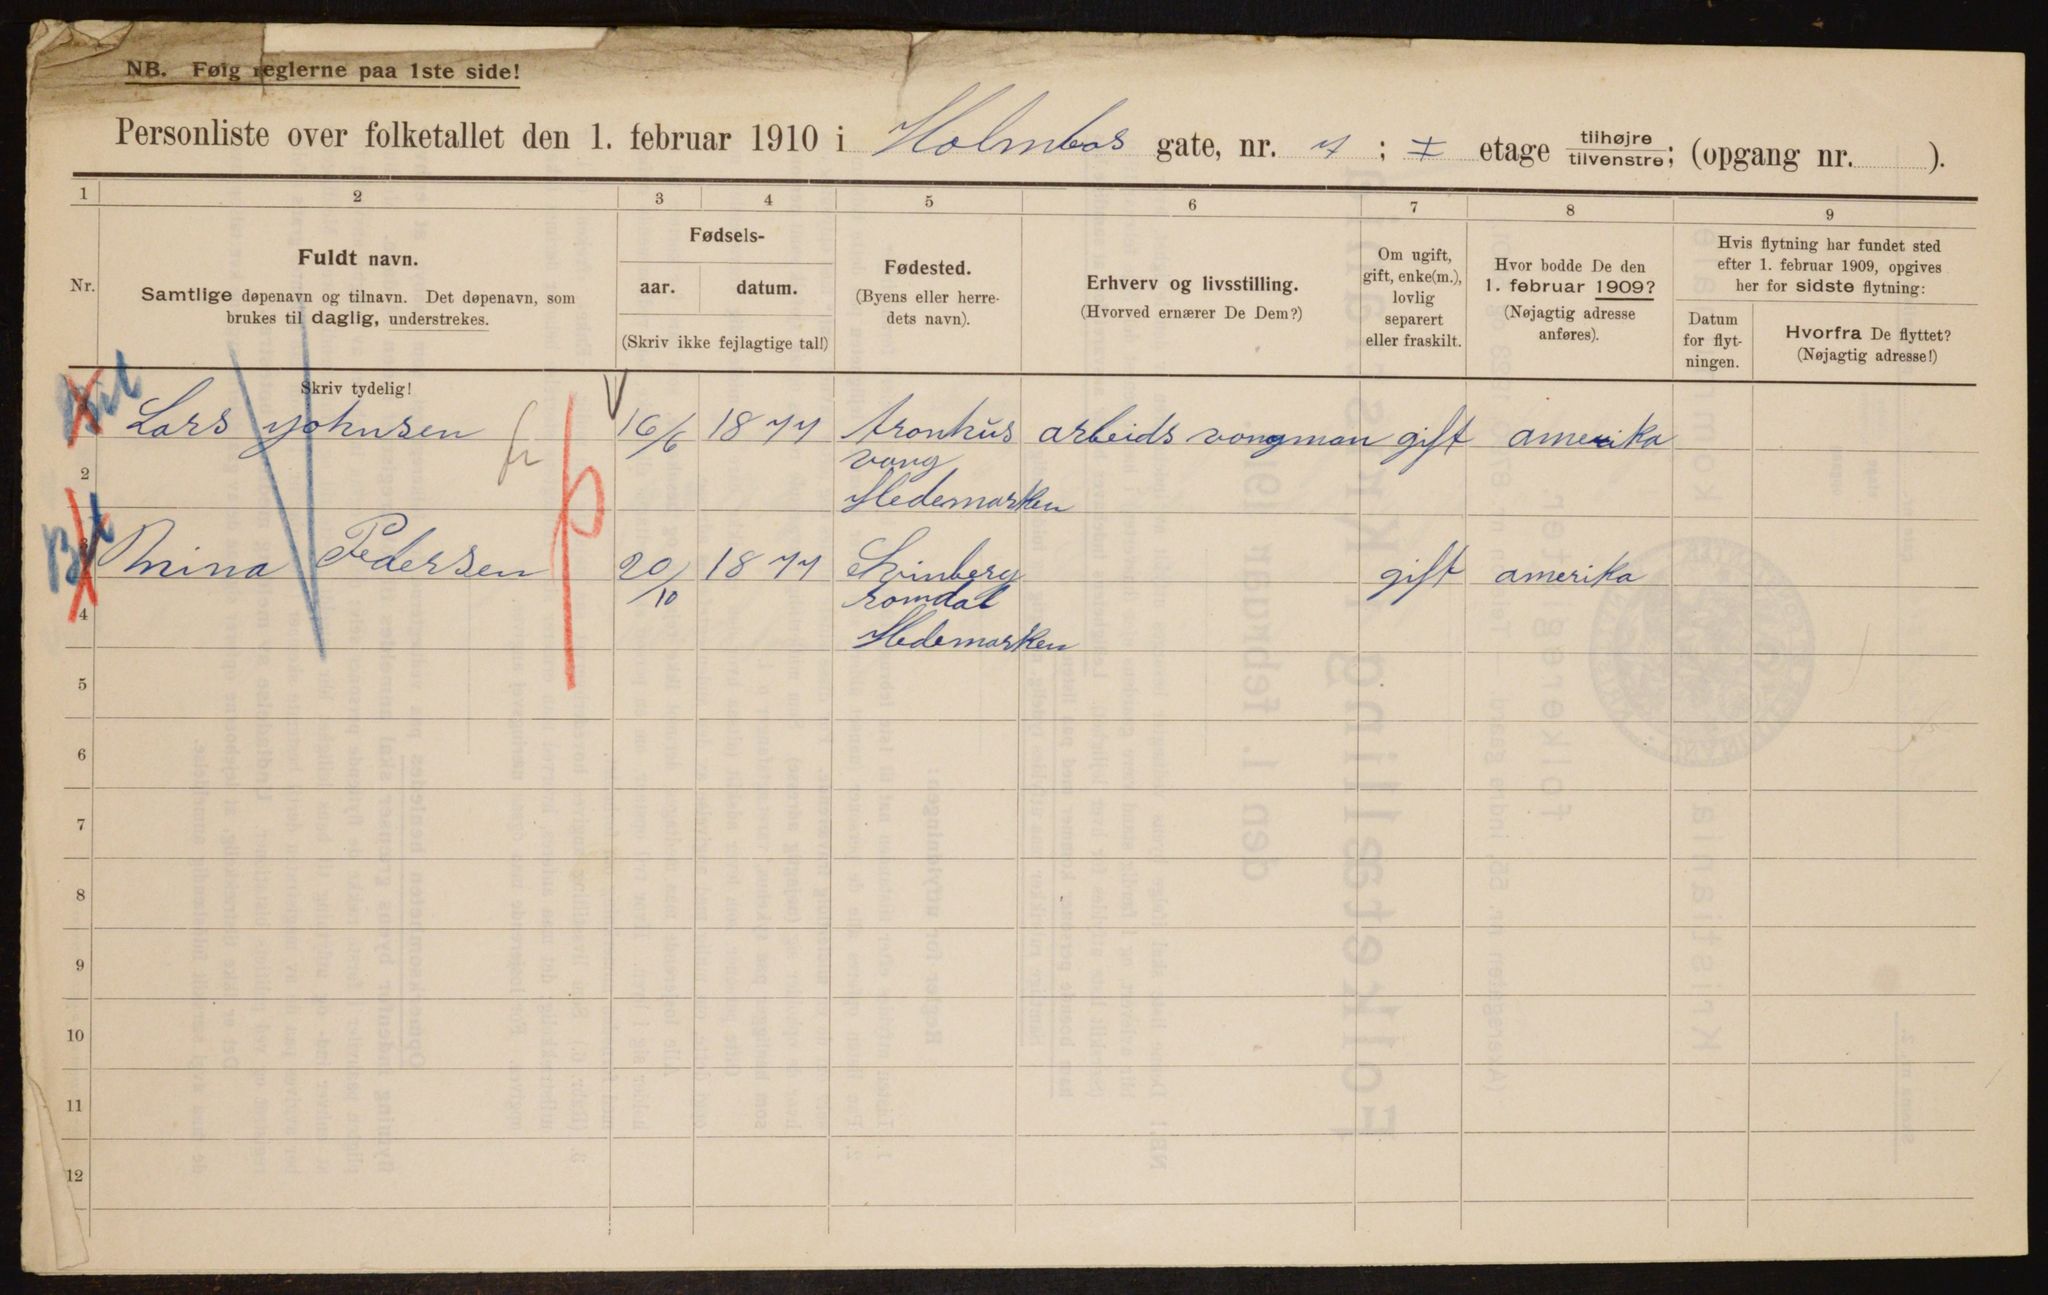 NB. Følg reglerne paa 1ste side!
Personliste over folketallet den 1. februar 1910 i Holmbos gate, nr. 7 ; I etage tilhøjre / tilvenstre; (opgang nr. ).
1 2 3 4 5 6 7 8 9
Nr.
Fuldt navn.
Samtlige døpenavn og tilnavn. Det døpenavn, som
brukes til daglig, understrekes.
Fødsels-
aar. datum.
(Skriv ikke fejlagtige tal!)
Fødested.
(Byens eller herre-
dets navn).
Erhverv og livsstilling.
(Hvorved ernærer De Dem?)
Om ugift,
gift, enke(m.),
lovlig
separert
eller fraskilt.
Hvor bodde De den
1. februar 1909?
(Nøjagtig adresse
anføres).
Hvis flytning har fundet sted
efter 1. februar 1909, opgives
her for sidste flytning:
Datum
for flyt-
ningen.
Hvorfra De flyttet?
(Nøjagtig adresse!)
Skriv tydelig!
Lars Johnsen 16/6 1877 Aronhus arbeids vongman gift amerika
2 vang
Hedemarken
3 Mina Pedersen 20/10 1877 Svinberg gift amerika
4 romdal
Hedemarken
5
6
7
8
9
10
11
12